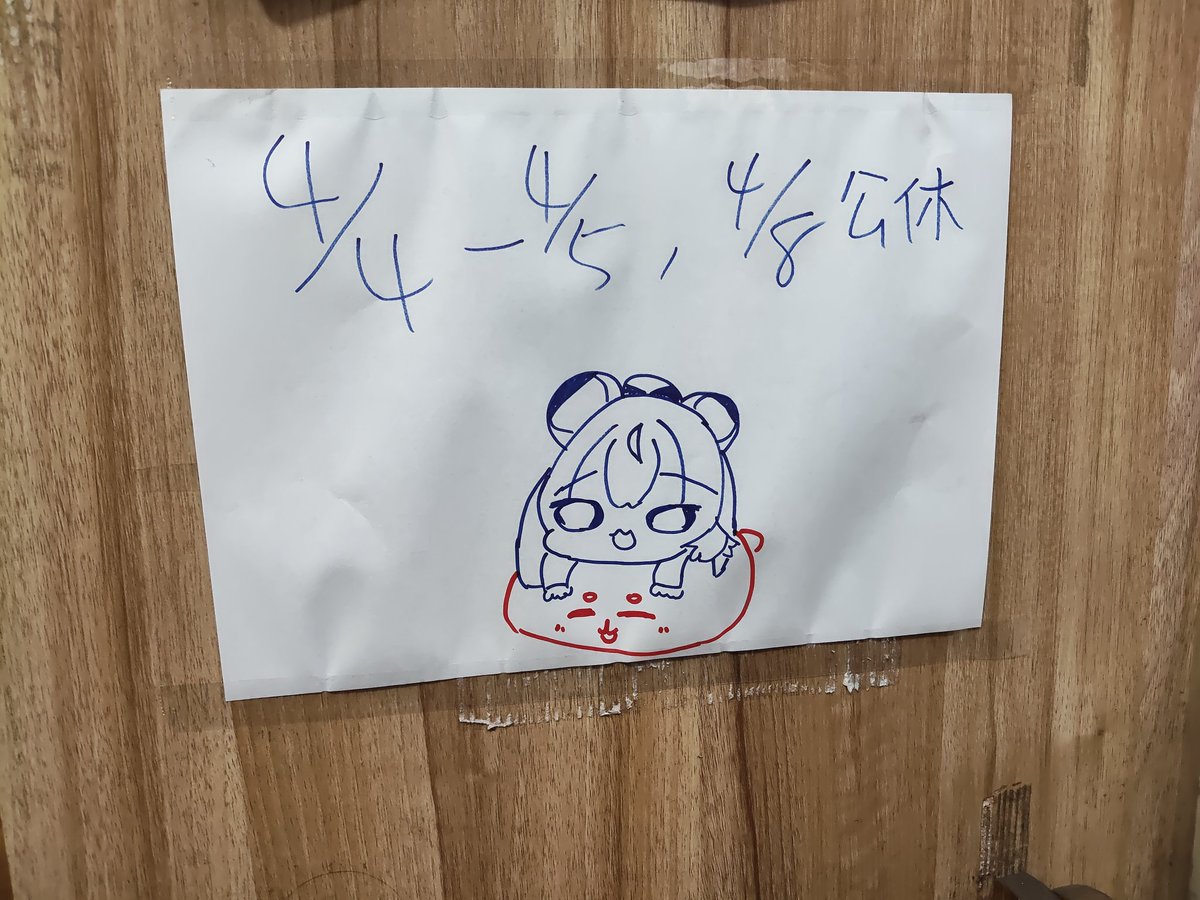 4/4 - 4/5, 4/8 公休